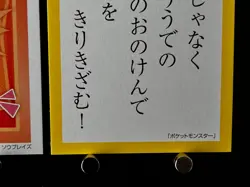 じゃなく
うでの
のおのけんで
を
きりきざむ!
「ポケットモンスター」
ソウブレイズ